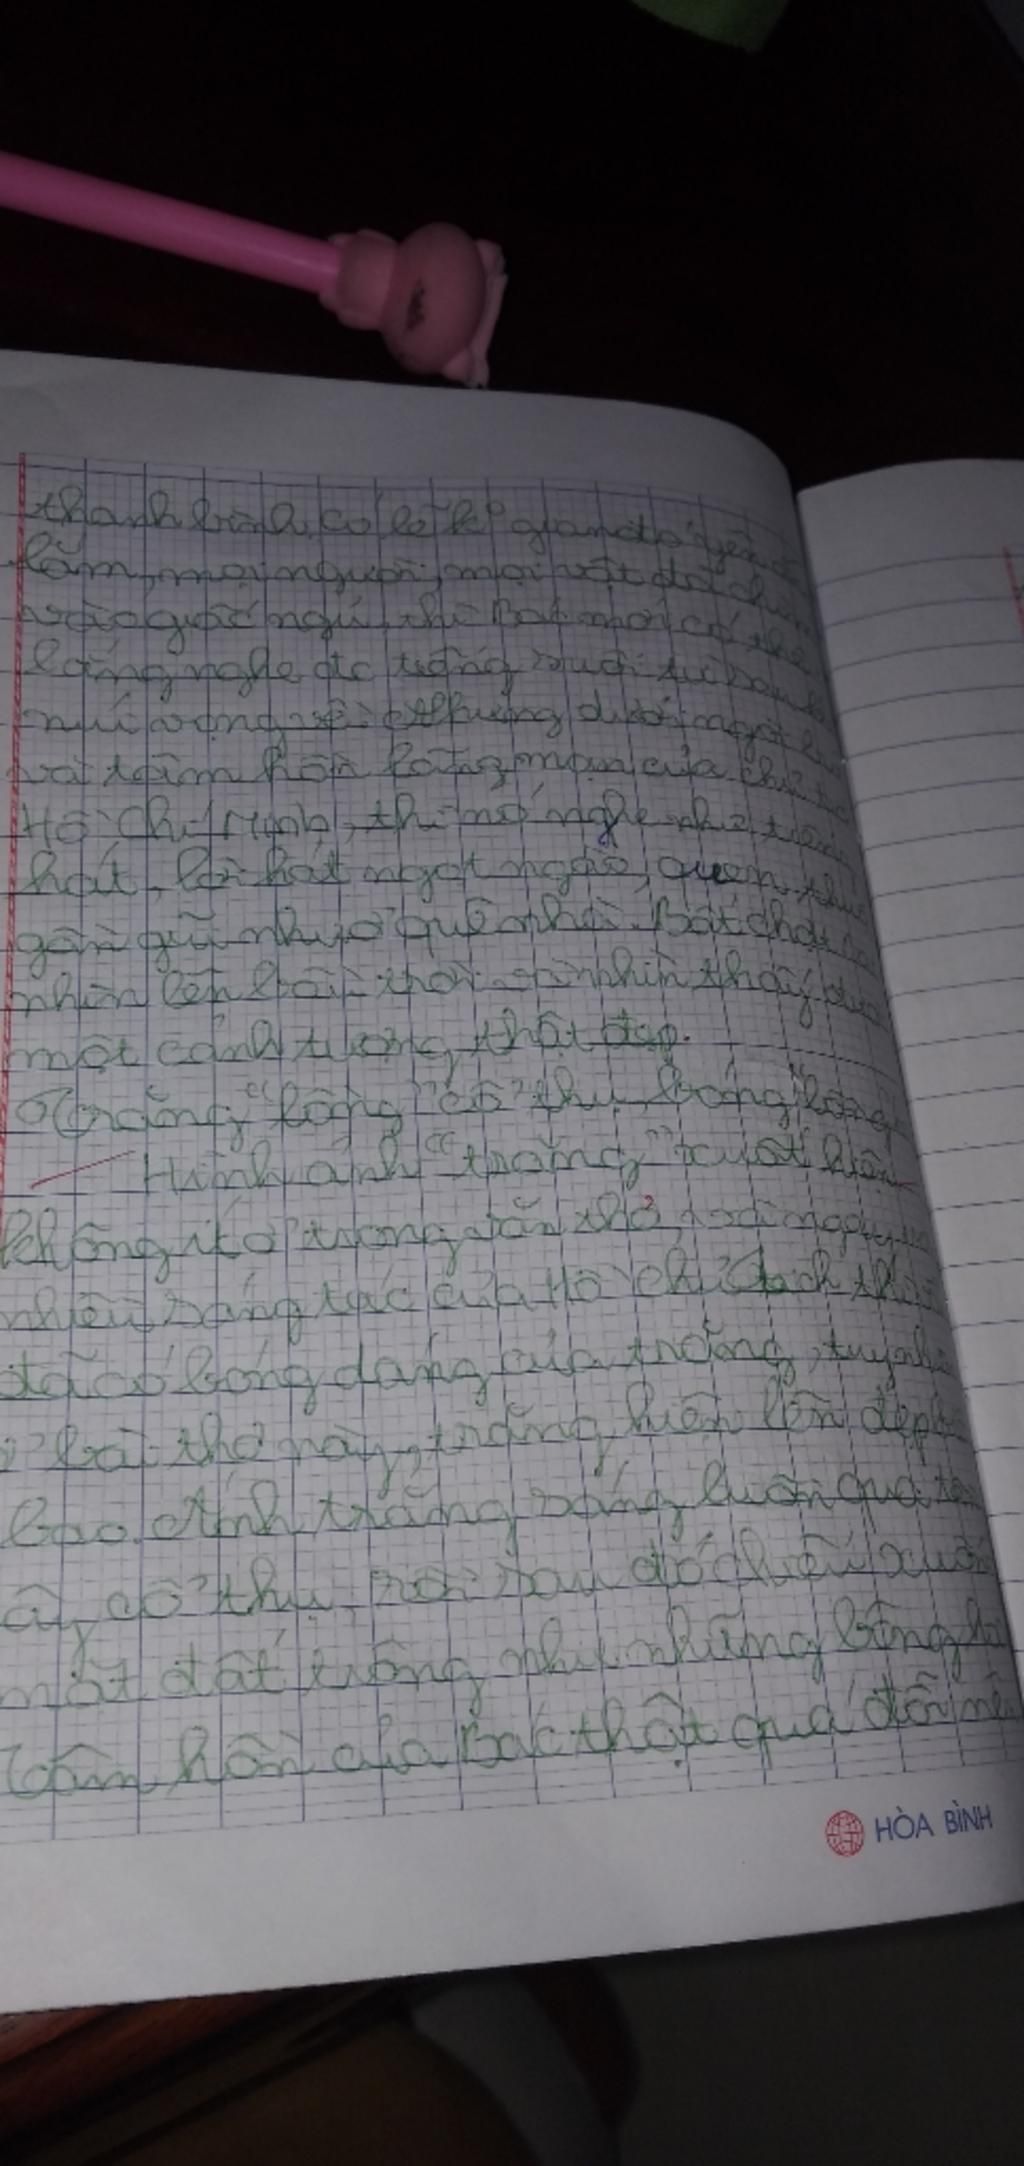 thanh bình, có lẽ k° gian đó yên
lắm, mọi người, mọi vật đã chìm
vào giấc ngủ, thì Bác mới có thể
lắng nghe đc tiếng suối từ
núi vọng về. Nhưng dưới ngòi bút
và tâm hồn lãng mạn của chủ tịch
Hồ Chí Minh, thì nó nghe như tiếng
hát, lời hát ngọt ngào, quen thuộc
gần gũi như ở quê nhà. Bất chợt
nhìn lên bầu trời, nhìn thấy được
một cảnh tượng thật đẹp.
"Trăng lồng cổ thụ bóng lồng
Hình ảnh "trăng" xuất hiện
không ít ở trong văn thơ, ngay
nhiều sáng tác của Hồ Chí
đã có bóng dáng của trăng, tuy nhiên
ở bài thơ này, trăng hiện lên đẹp
bao. Ánh trăng sáng luồn qua tán
cây cổ thụ, rồi sau đó chiếu xuống
mặt đất trông như những bông hoa
Tâm hồn của Bác thật quá đỗi
HÒA BÌNH